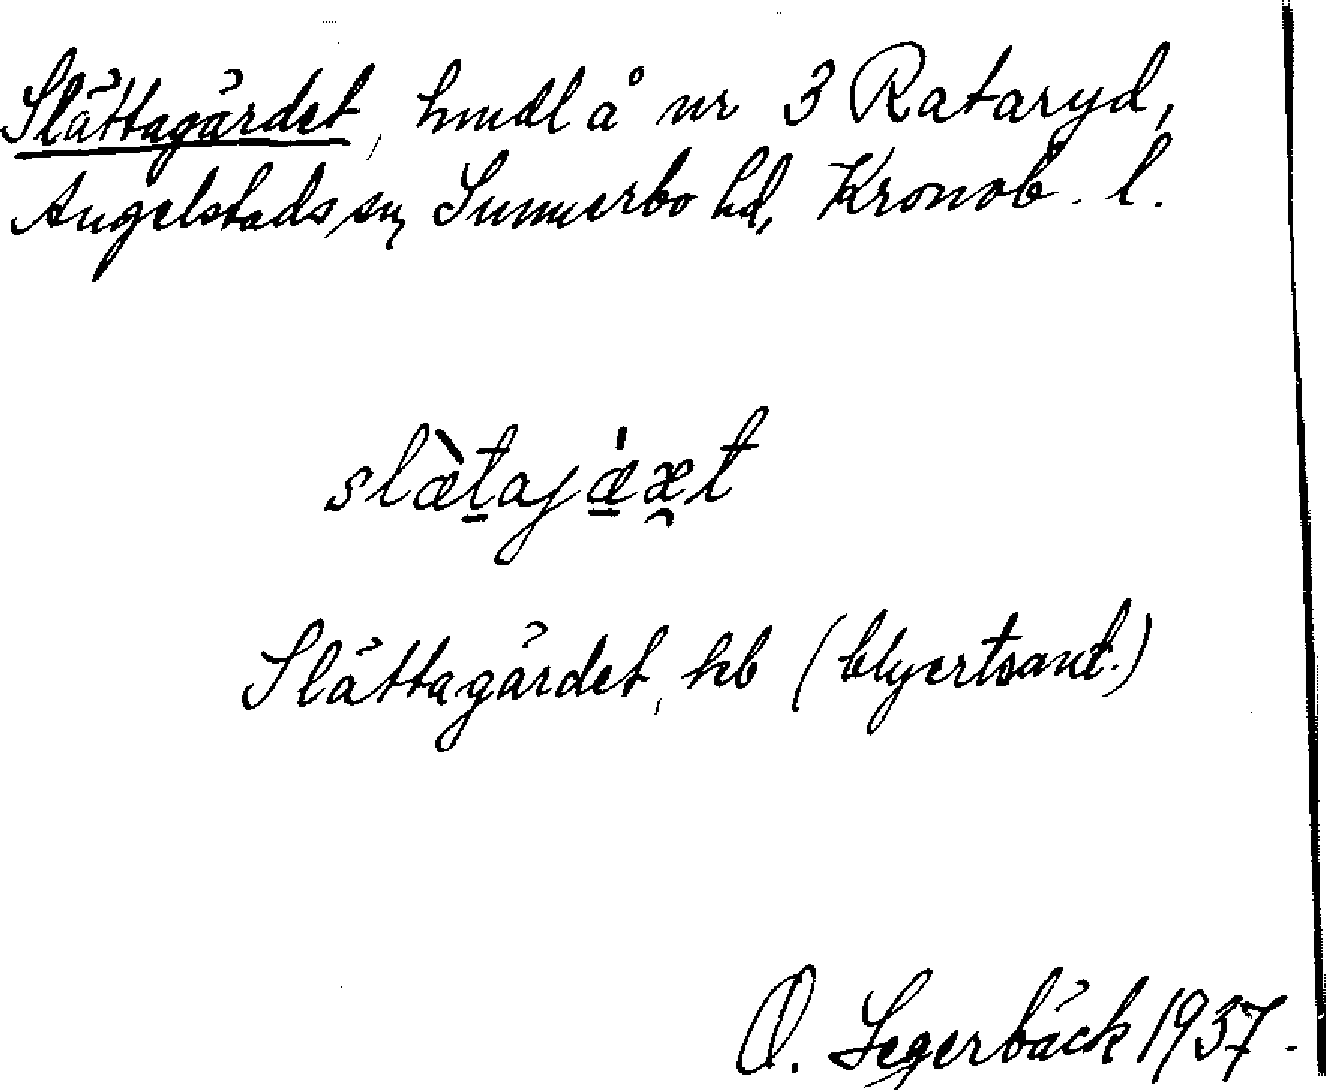 Slättagärdet, hmdl å nr 3 Rataryd,
Angelstads sn, Sunnerbo hd, Kronob. l.
slæ̀t̠ajǽ̠æ̯t
Slättagärdet, hb (blyertsant.)
O. Segerbäck 1937.